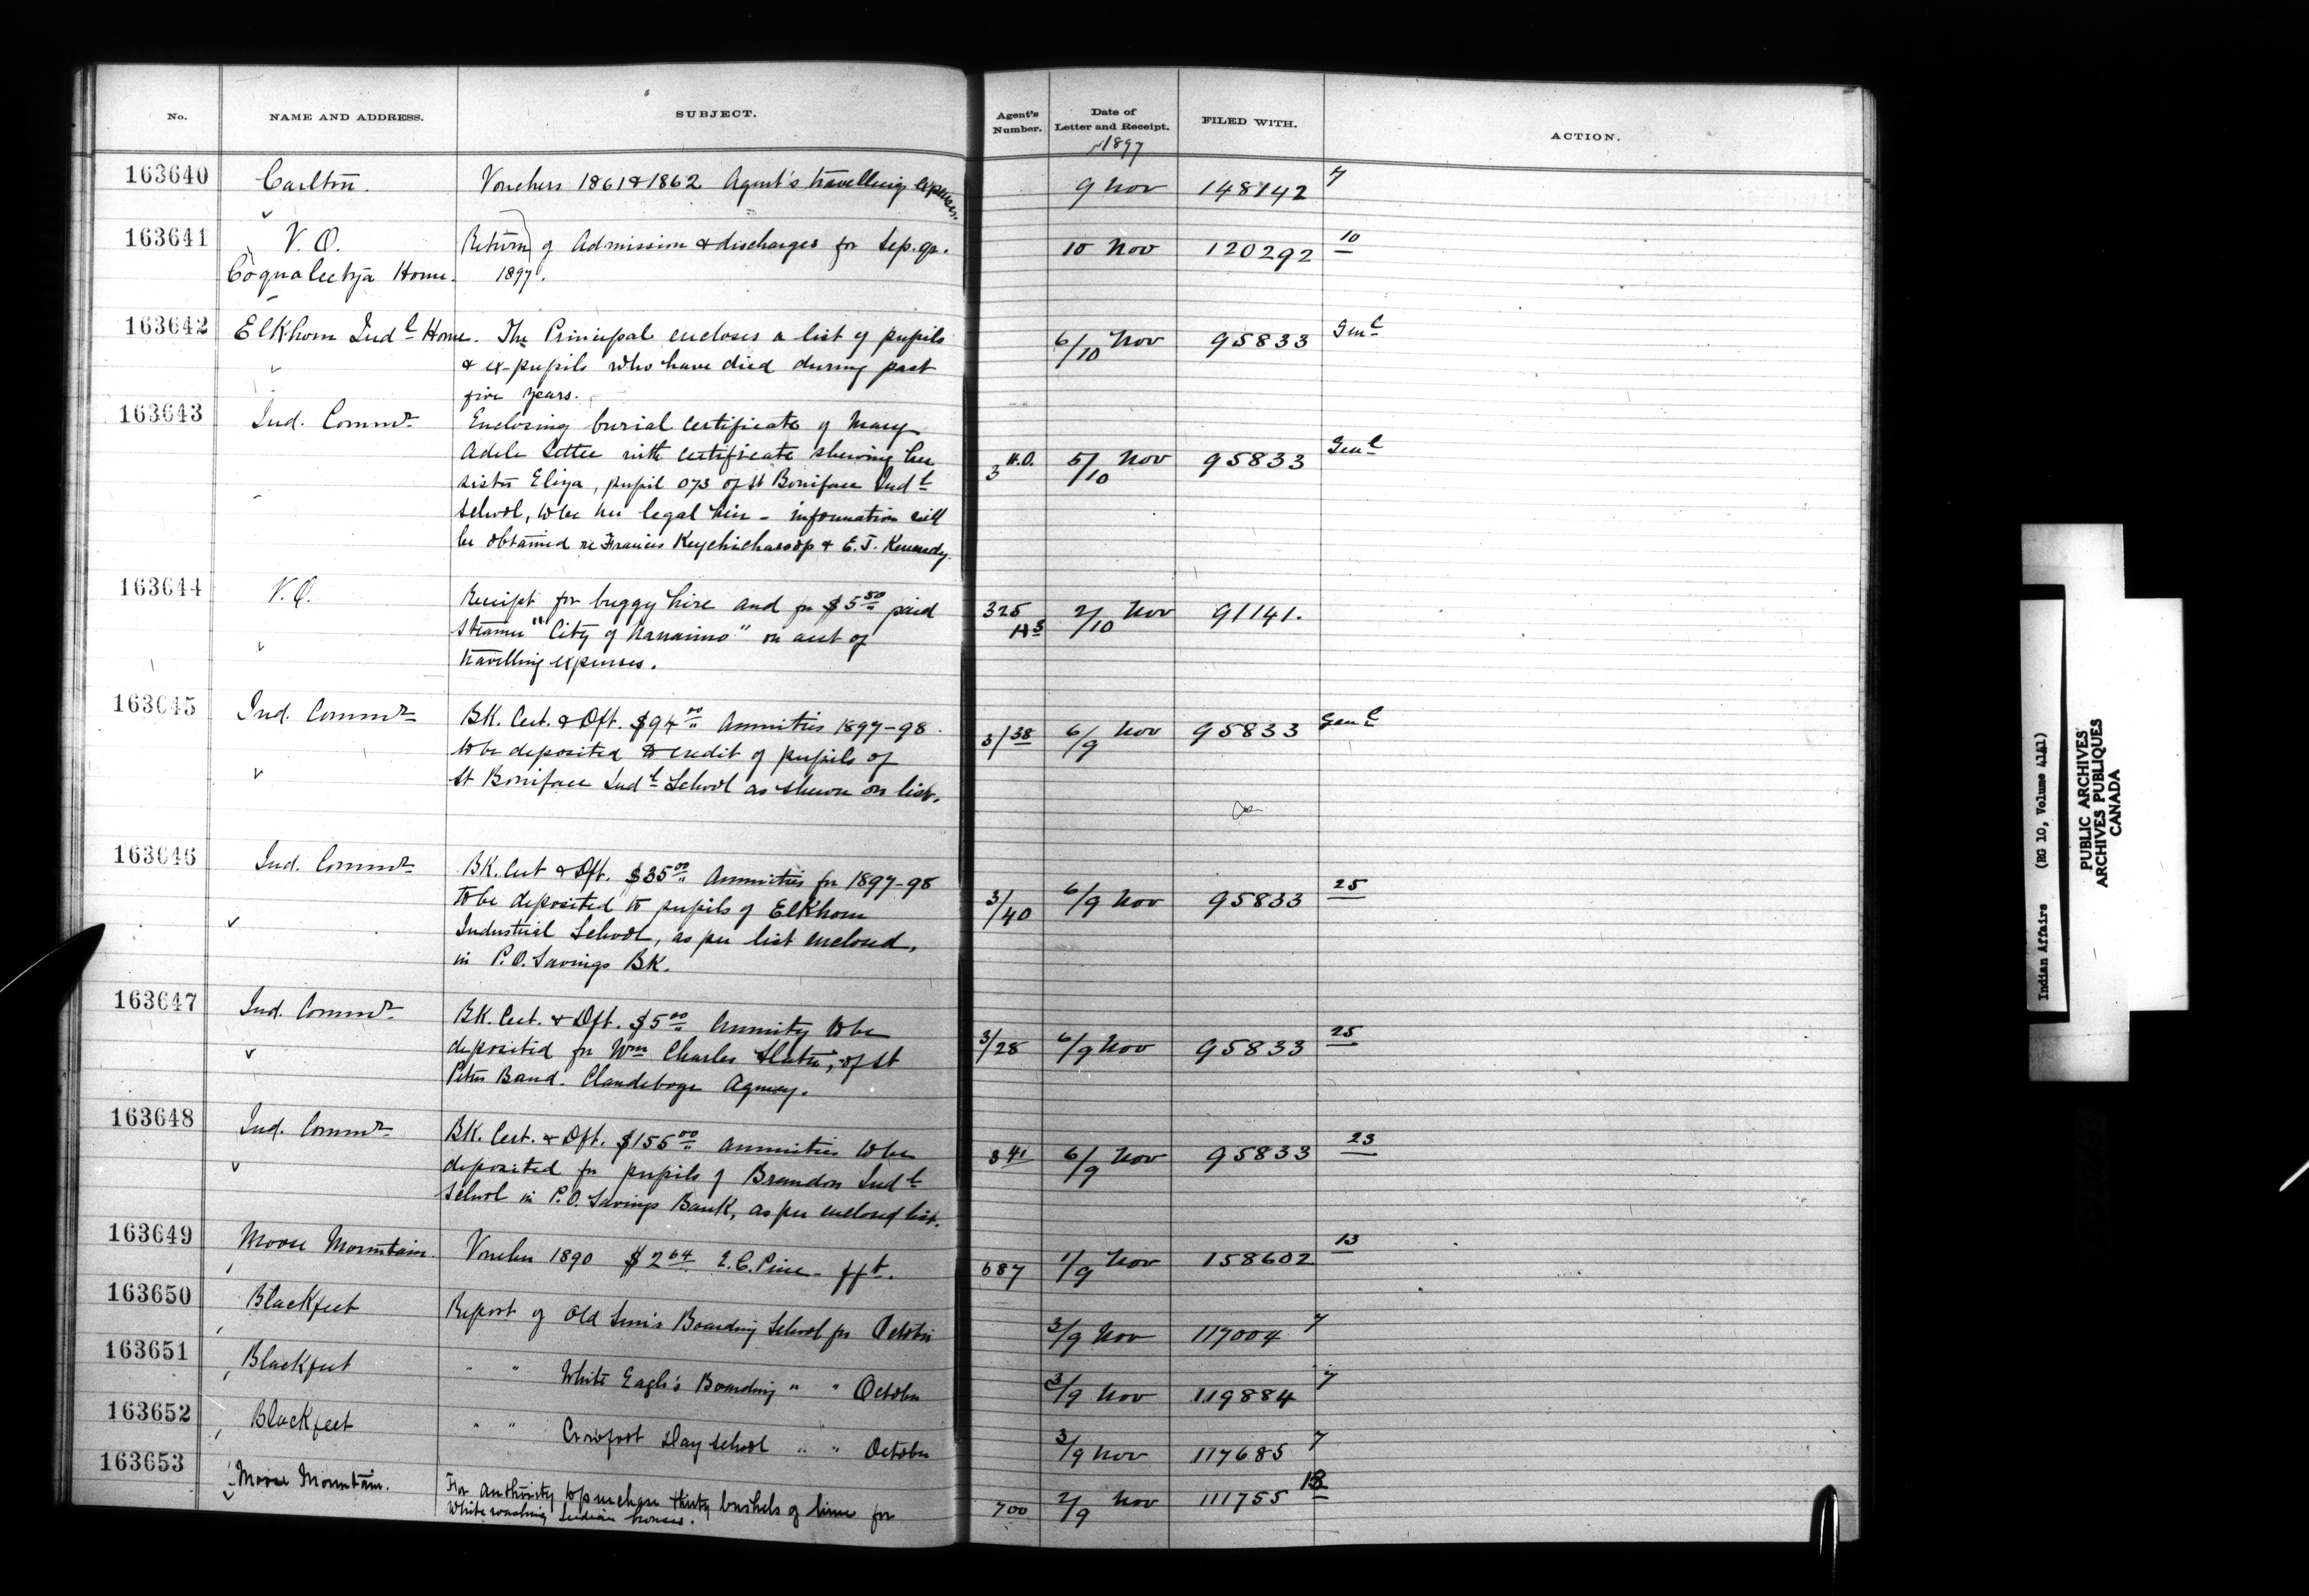 No. NAME AND ADDRESS. SUBJECT. Agent's Number. Date of Letter and Receipt. FILED WITH. ACTION.
1897
163640 Carlton. Vouchers 1861 & 1862 Agent's travelling expenses. 9 Nov 148142 7
163641 V. O. Return of Admission & discharges for Sep. qr. 10 Nov 120292 10
Coqualeetza Home. 1897.
163642 Elkhorn Indl Home. The Principal encloses a list of pupils 6/10 Nov 95833 Genl
& ex-pupils who have died during past
five years.
163643 Ind. Commr Enclosing burial certificate of Mary
Adele Settee with certificate shewing her 3 H.O. 5/10 Nov 95833 Genl
sister Eliza, pupil 073 of St Boniface Indl
School, to be her legal heir - information will
be obtained re Francis & E. J. Kennedy.
163644 V. O. Receipt for buggy hire and for $5.50 paid 325 2/10 Nov 91141.
Steamer "City of Nanaimo" on acct of
travelling expenses.
163645 Ind. Commr BK. Cert. & Dft. $94.00 Annuities 1897-98 3/38 6/9 Nov 95833 Genl
to be deposited to credit of pupils of
St Boniface Indl School as shewn on list.
163646 Ind. Commr BK. Cert & Dft. $35.00 Annuities for 1897-98 3/40 6/9 Nov 95833 25
to be deposited to pupils of Elkhorn
Industrial School, as per list enclosed,
in P.O. Savings BK.
163647 Ind. Commr BK. Cert. & Dft. $5.00 Annuity to be 3/28 6/9 Nov 95833 25
deposited for Wm Charles Slater, of St
Peters Band. Clandeboye Agency.
163648 Ind. Commr BK. Cert. & Dft. $155.00 annuities to be 3 41 6/9 Nov 95833 23
deposited for pupils of Brandon Indl
School in P.O. Savings Bank, as per enclosed list.
163649 Moose Mountain. Voucher 1890 $2.64 E. C. 687 1/9 Nov 158602 13
163650 Blackfeet Report of Old Sun's Boarding School for October 3/9 Nov 117004 7
163651 Blackfeet " " White Eagle's Boarding " " October 3/9 Nov 119884 7
163652 Blackfeet " " Crowfoot Day School " " October 3/9 Nov 117685 7
163653 Moose Mountain. For authority to purchase thirty bushels of lime for 700 2/9 Nov 111755 13
White washing Indian houses.
Indian Affairs (RG 10, Volume 4141)
PUBLIC ARCHIVES
ARCHIVES PUBLIQUES
CANADA